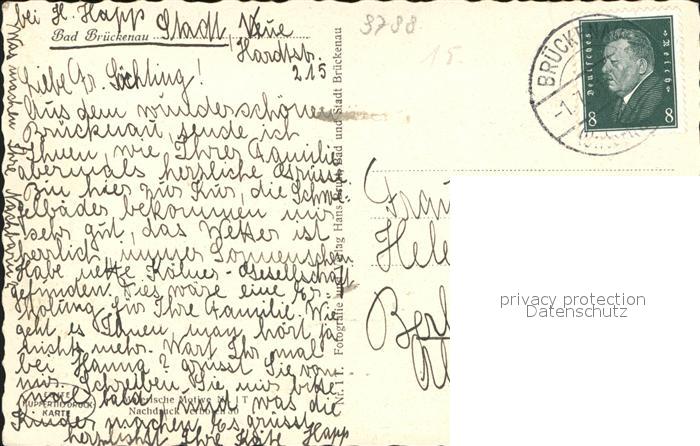 bei H. Happ
Bad Brückenau Stadt, Neue
Hardtstr.
215
Liebe Fr. Lichting!
Aus dem wunderschönen
Brückenau, sende ich
Ihnen, wie Ihrer Familie
abermals herzliche Grüsse.
Bin hier zur Kur, die Schwe-
felbäder bekommen mir
sehr gut, das Wetter ist
herrlich, immer Sonnenschein
Habe nette Kölner-Gesellschaft
gefunden. Dies wäre eine Er-
holung für Ihre Familie. Wie
geht es Ihnen, man hört ja
nichts mehr. Wart Ihr mal
bei Hanna? grüsst Sie von
mir. Schreiben Sie mir bitte
mal bald und was die
Kinder machen. Es grüsst
herzlichst Ihre Käte Happ
ECHTE
KUPFERTIEFDRUCK-
KARTE
Motive Nr. 1 T
Nachdruck verboten 30
Nr. 1 T. Fotografie und Verlag Hans Bad und Stadt Brückenau
3788
15.
BRÜCKENAU
-1.
Deutsches Reich
8 8
Frau
Hele
Berl
privacy protection
Datenschutz